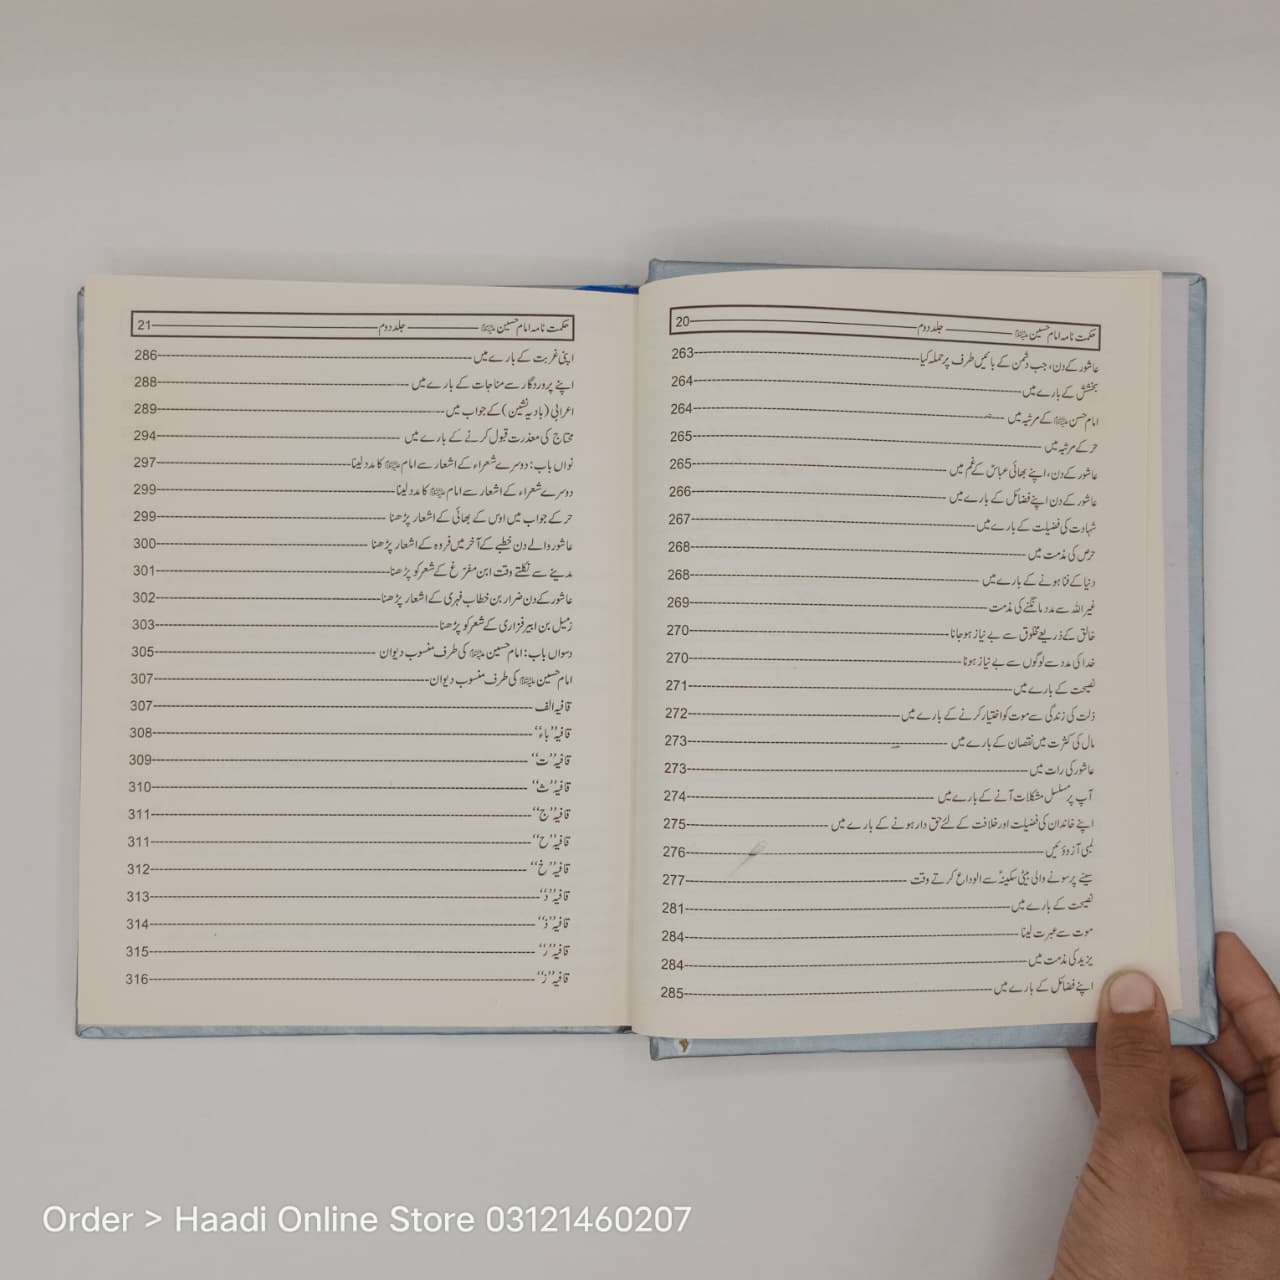 حکمت نامہ امام حسین علیہ السلام ــــــــ جلد دوم ــــــــ 20
عاشور کے دن، جب دشمن کے بائیں طرف پر حملہ کیا 263
بخشش کے بارے میں 264
امام حسن علیہ السلام کے مرثیہ میں 264
حر کے مرثیہ میں 265
عاشور کے دن، اپنے بھائی عباسؑ کے غم میں 265
عاشور کے دن اپنے فضائل کے بارے میں 266
شہادت کی فضیلت کے بارے میں 267
حرص کی مذمت میں 268
دنیا کے فنا ہونے کے بارے میں 268
غیر اللہ سے مدد مانگنے کی مذمت 269
خالق کے ذریعے مخلوق سے بے نیاز ہو جانا 270
خدا کی مدد سے لوگوں سے بے نیاز ہونا 270
نصیحت کے بارے میں 271
ذلت کی زندگی سے موت کو اختیار کرنے کے بارے میں 272
مال کی کثرت میں نقصان کے بارے میں 273
عاشور کی رات میں 273
آپ پر مسلسل مشکلات آنے کے بارے میں 274
اپنے خاندان کی فضیلت اور خلافت کے لئے حق دار ہونے کے بارے میں 275
لمبی آرزوئیں 276
سینے پر سونے والی بیٹی سکینہؑ سے الوداع کرتے وقت 277
نصیحت کے بارے میں 281
موت سے عبرت لینا 284
یزید کی مذمت میں 284
اپنے فضائل کے بارے میں 285
حکمت نامہ امام حسین علیہ السلام ــــــــ جلد دوم ــــــــ 21
اپنی غربت کے بارے میں 286
اپنے پروردگار سے مناجات کے بارے میں 288
اعرابی (بادیہ نشین) کے جواب میں 289
محتاج کی معذرت قبول کرنے کے بارے میں 294
نواں باب: دوسرے شعراء کے اشعار سے امام علیہ السلام کا مدد لینا 297
دوسرے شعراء کے اشعار سے امام علیہ السلام کا مدد لینا 299
حر کے جواب میں اوس کے بھائی کے اشعار پڑھنا 299
عاشور والے دن خطبے کے آخر میں فروہ کے اشعار پڑھنا 300
مدینے سے نکلتے وقت ابن مفرّغ کے شعر کو پڑھنا 301
عاشور کے دن ضرار بن خطاب فہری کے اشعار پڑھنا 302
زمیل بن ابیر فزاری کے شعر کو پڑھنا 303
دسواں باب: امام حسین علیہ السلام کی طرف منسوب دیوان 305
امام حسین علیہ السلام کی طرف منسوب دیوان 307
قافیہ الف 307
قافیہ ’’باء‘‘ 308
قافیہ ’’ت‘‘ 309
قافیہ ’’ث‘‘ 310
قافیہ ’’ج‘‘ 311
قافیہ ’’ح‘‘ 311
قافیہ ’’خ‘‘ 312
قافیہ ’’د‘‘ 313
قافیہ ’’ذ‘‘ 314
قافیہ ’’ر‘‘ 315
قافیہ ’’ز‘‘ 316
Order > Haadi Online Store 03121460207